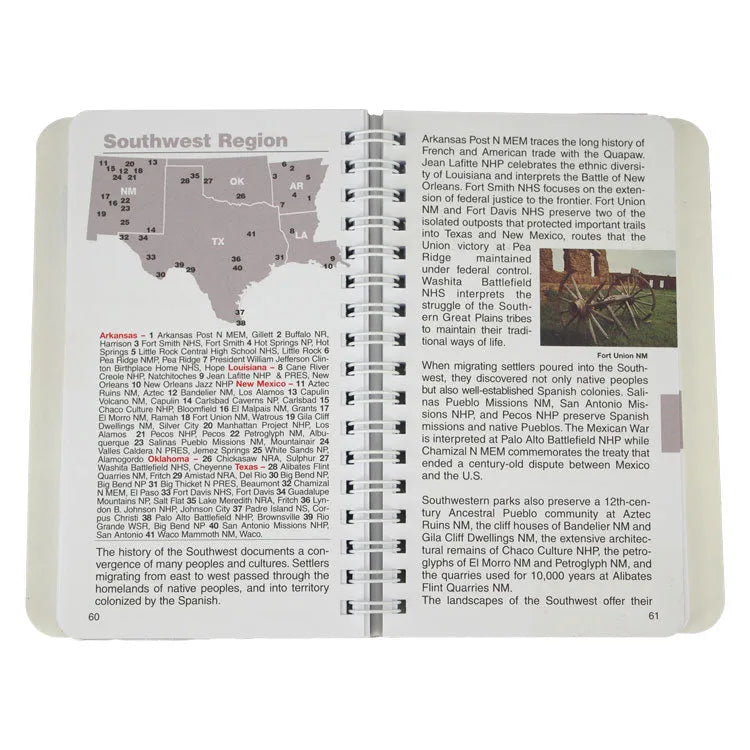 Southwest Region
11 20 13
15 12 18
24 21
NM
17
16 22
23
19
25
14
32 34
28 27
35
OK
26
6 2
3 5
AR
7 4 1
TX
41
8
LA
9
10
33
30 29 31
36
40
37
38
Arkansas – 1 Arkansas Post N MEM, Gillett 2 Buffalo NR,
Harrison 3 Fort Smith NHS, Fort Smith 4 Hot Springs NP, Hot
Springs 5 Little Rock Central High School NHS, Little Rock 6
Pea Ridge NMP, Pea Ridge 7 President William Jefferson Clin-
ton Birthplace Home NHS, Hope Louisiana – 8 Cane River
Creole NHP, Natchitoches 9 Jean Lafitte NHP & PRES, New
Orleans 10 New Orleans Jazz NHP New Mexico – 11 Aztec
Ruins NM, Aztec 12 Bandelier NM, Los Alamos 13 Capulin
Volcano NM, Capulin 14 Carlsbad Caverns NP, Carlsbad 15
Chaco Culture NHP, Bloomfield 16 El Malpais NM, Grants 17
El Morro NM, Ramah 18 Fort Union NM, Watrous 19 Gila Cliff
Dwellings NM, Silver City 20 Manhattan Project NHP, Los
Alamos 21 Pecos NHP, Pecos 22 Petroglyph NM, Albu-
querque 23 Salinas Pueblo Missions NM, Mountainair 24
Valles Caldera N PRES, Jemez Springs 25 White Sands NP,
Alamogordo Oklahoma – 26 Chickasaw NRA, Sulphur 27
Washita Battlefield NHS, Cheyenne Texas – 28 Alibates Flint
Quarries NM, Fritch 29 Amistad NRA, Del Rio 30 Big Bend NP,
Big Bend NP 31 Big Thicket N PRES, Beaumont 32 Chamizal
N MEM, El Paso 33 Fort Davis NHS, Fort Davis 34 Guadalupe
Mountains NP, Salt Flat 35 Lake Meredith NRA, Fritch 36 Lyn-
don B. Johnson NHP, Johnson City 37 Padre Island NS, Cor-
pus Christi 38 Palo Alto Battlefield NHP, Brownsville 39 Rio
Grande WSR, Big Bend NP 40 San Antonio Missions NHP,
San Antonio 41 Waco Mammoth NM, Waco.
The history of the Southwest documents a con-
vergence of many peoples and cultures. Settlers
migrating from east to west passed through the
homelands of native peoples, and into territory
colonized by the Spanish.
60
Arkansas Post N MEM traces the long history of
French and American trade with the Quapaw.
Jean Lafitte NHP celebrates the ethnic diversi-
ty of Louisiana and interprets the Battle of New
Orleans. Fort Smith NHS focuses on the exten-
sion of federal justice to the frontier. Fort Union
NM and Fort Davis NHS preserve two of the
isolated outposts that protected important trails
into Texas and New Mexico, routes that the
Union victory at Pea
Ridge maintained
under federal control.
Washita Battlefield
NHS interprets the
struggle of the South-
ern Great Plains tribes
to maintain their tradi-
tional ways of life.
Fort Union NM
When migrating settlers poured into the South-
west, they discovered not only native peoples
but also well-established Spanish colonies. Sali-
nas Pueblo Missions NM, San Antonio Mis-
sions NHP, and Pecos NHP preserve Spanish
missions and native Pueblos. The Mexican War
is interpreted at Palo Alto Battlefield NHP while
Chamizal N MEM commemorates the treaty that
ended a century-old dispute between Mexico
and the U.S.
Southwestern parks also preserve a 12th-cen-
tury Ancestral Pueblo community at Aztec
Ruins NM, the cliff houses of Bandelier NM and
Gila Cliff Dwellings NM, the extensive architec-
tural remains of Chaco Culture NHP, the petro-
glyphs of El Morro NM and Petroglyph NM, and
the quarries used for 10,000 years at Alibates
Flint Quarries NM.
The landscapes of the Southwest offer their
61